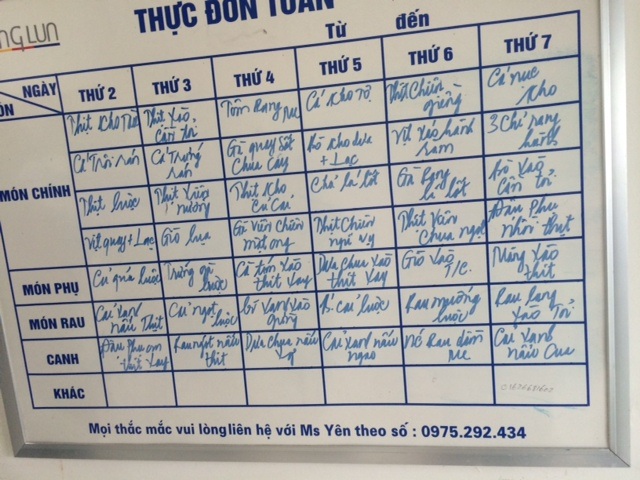 NGLUN
THỰC ĐƠN TUẦN
Từ đến
NGÀY
ÓN
THỨ 2 THỨ 3 THỨ 4 THỨ 5 THỨ 6 THỨ 7
Thịt kho Thịt xào Tôm rang me Cá kho tộ Thịt chiên Cá nục
cần tỏi giềng kho
MÓN CHÍNH
Cá trôi rán Cá trứng Gà quay sốt Bò kho dừa Vịt xáo 3 chỉ rang
rán chua cay + Lạc hành
Thịt luộc Thịt xiên Thịt kho Chả lá lốt Gà rang Bò xào
nướng củ cải lá lốt cần tỏi
Vịt quay + Lạc Giò lụa Gà viên chiên Thịt chiên Thịt viên Đậu phụ
mật ong ngũ vị chua ngọt nhồi thịt
MÓN PHỤ
Củ quả luộc Trứng gà Cà tím xào Dưa chua xào Giò xào Măng xào
luộc thịt xay thịt xay T/C. thịt
MÓN RAU
Cải xanh Cư ngọt Bí xanh xào B. cải luộc Rau muống Rau lang
nấu thịt luộc luộc xào Tỏi
CANH
Đậu phụ om Rau ngót nấu Dưa chua nấu Cải xanh nấu Me Rau dầm Cải xanh
thịt xay thịt ngao me nấu Cua
KHÁC
Mọi thắc mắc vui lòng liên hệ với Ms Yên theo số : 0975.292.434